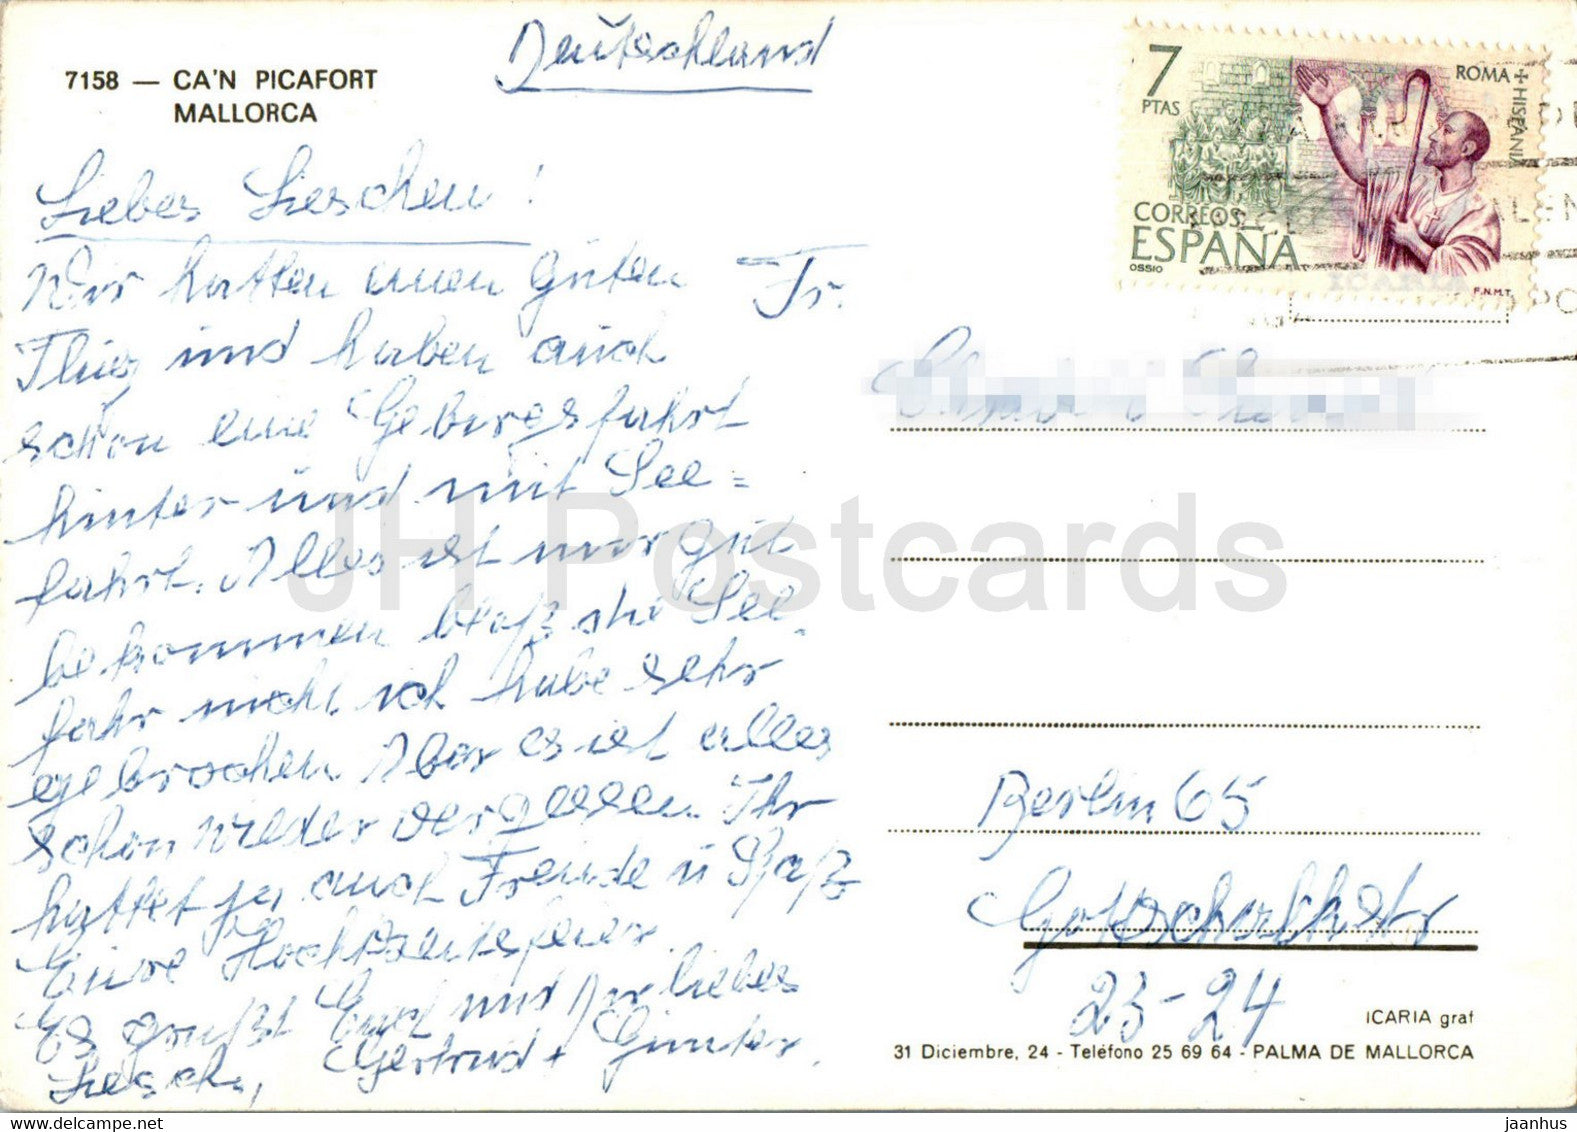 7158 — CA'N PICAFORT
MALLORCA
Deutschland
7
PTAS
ROMA + HISPANIA
CORREOS
ESPAÑA
OSSIO
F.N.M.T.
Liebes Lieschen!
Wir hatten einen guten
Flug und haben auch
schon eine Gebirgsfahrt
hinter und mit See=
fahrt. Alles ist mir gut
bekommen bloß die See
fahr nicht ich habe sehr
gebrochen Aber es ist alles
schon wieder vergessen. Ihr
hattet ja auch Freude u Spaß
Eure Hochzeitsfeier.
Es grüßt Euch und Dir liebes
Liesch, Gertrud + Günter.
Fr.
Berlin 65
23-24
ICARIA graf
31 Diciembre, 24 - Teléfono 25 69 64 - PALMA DE MALLORCA
JH Postcards
delcampe.net
jaanhus